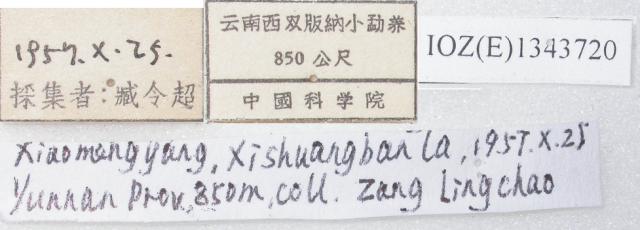 1957.X.25.
採集者:臧令超
云南西双版納小勐养
850公尺
中國科学院
IOZ(E)1343720
Xiaomengyang, Xishuangbanla, 1957.X.25
Yunnan Prov, 850m, coll. Zang Lingchao